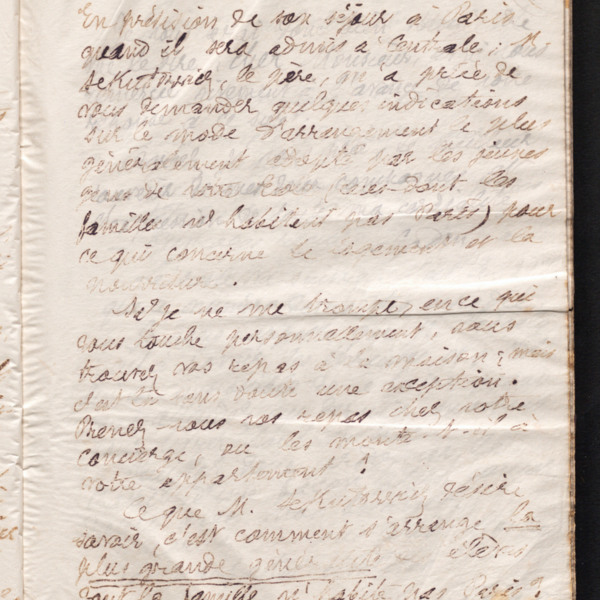 En prévision de son séjour à Paris
quand il sera admis à Centrale, M.
le père, on a prié de
vous demander quelques indications
sur le mode d'arrangement le plus
généralement adopté par les jeunes
gens de votre (ceux dont les
familles n'habitent pas Paris) pour
ce qui concerne le logement et la
nourriture.
Si je ne me trompe, en ce qui
vous touche personnellement, vous
trouvez vos repas à la maison ; mais
c'est là sans doute une exception.
Prenez-vous vos repas chez votre
concierge, ou les monte-t-il à
votre appartement ?
Ce que M. désire
savoir, c'est comment s'arrange la
plus grande élèves
dont la famille n'habite pas Paris ?